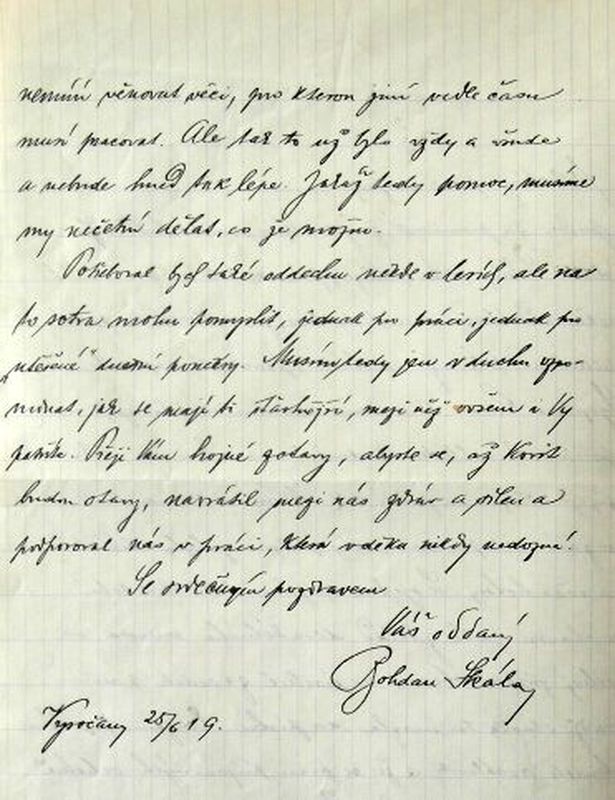 nemíní věnovat věci, pro kterou jiní vedle času
musí pracovat. Ale tak to už bylo vždy a všude
a nebude hned tak lépe. Jakáž tedy pomoc, musíme
my nečetní dělat, co je možno.
Potřeboval bych také oddechu někde v lesích, ale na
to sotva mohu pomyslit, jednak pro práci, jednak pro
„utěšené" dnešní poměry. Musím tedy jen v duchu vzpo-
mínat, jak se mají ti šťastnější, mezi něž ovšem i Vy
patříte. Přeji Vám hojné zotavy, abyste se, až
budou otavy, navrátil mezi nás zdráv a pilen a
podporoval nás v práci, která vděku nikdy nedozná!
Se srdečným pozdravem
Váš oddaný
Bohdan Skála
Vysočany 25/6 19.